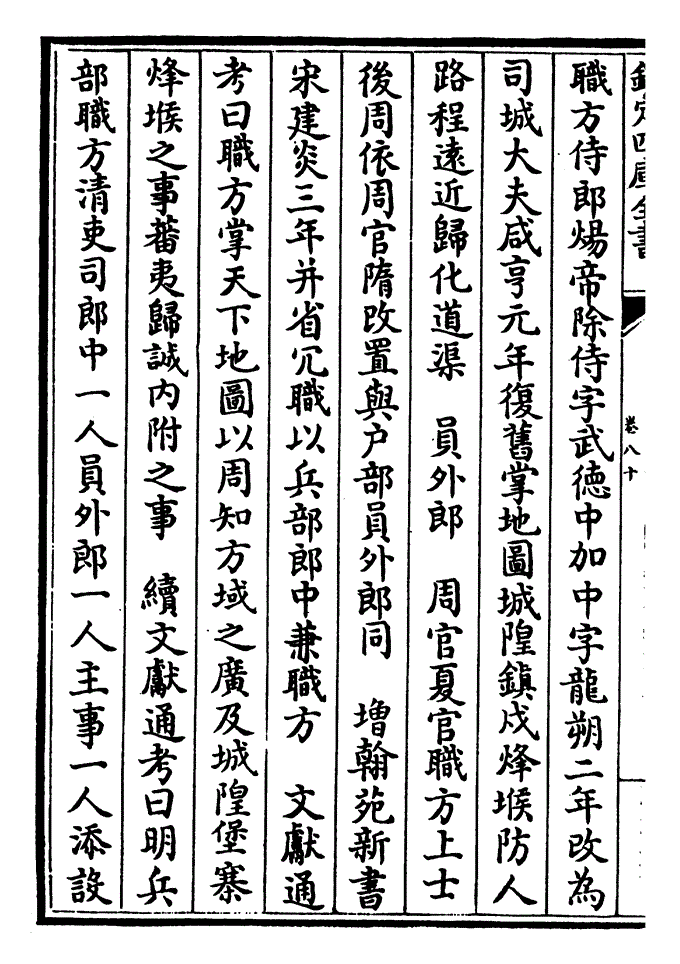 欽定四庫全書
卷八十
職方侍郎煬帝除侍字武德中加中字龍朔二年改為
司城大夫咸亨元年復舊掌地圖城隍鎮戍烽堠防人
路程遠近歸化道渠　員外郎　周官夏官職方上士
後周依周官隋改置與户部員外郎同　増翰苑新書
宋建炎三年并省冗職以兵部郎中兼職方　文獻通
考曰職方掌天下地圖以周知方域之廣及城隍堡寨
烽堠之事蕃夷歸誠内附之事　續文獻通考曰明兵
部職方清吏司郎中一人員外郎一人主事一人添設